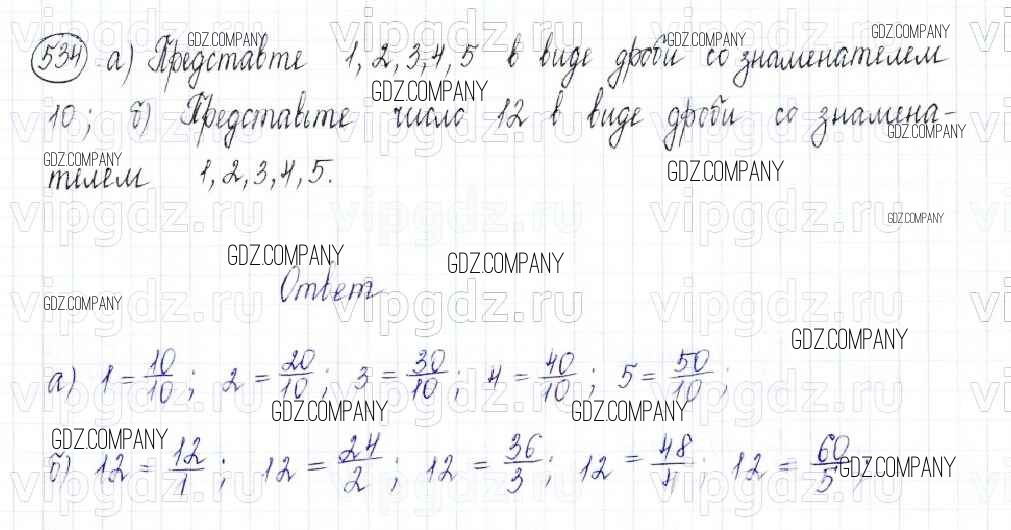 534 а) Представте 1, 2, 3, 4, 5 в виде дроби со знаменателем
10; б) Представьте число 12 в виде дроби со знамена-
телем 1, 2, 3, 4, 5.
Ответ
а) 1 = 10/10; 2 = 20/10; 3 = 30/10; 4 = 40/10; 5 = 50/10;
б) 12 = 12/1; 12 = 24/2; 12 = 36/3; 12 = 48/4; 12 = 60/5;
GDZ.COMPANY
vipgdz.ru